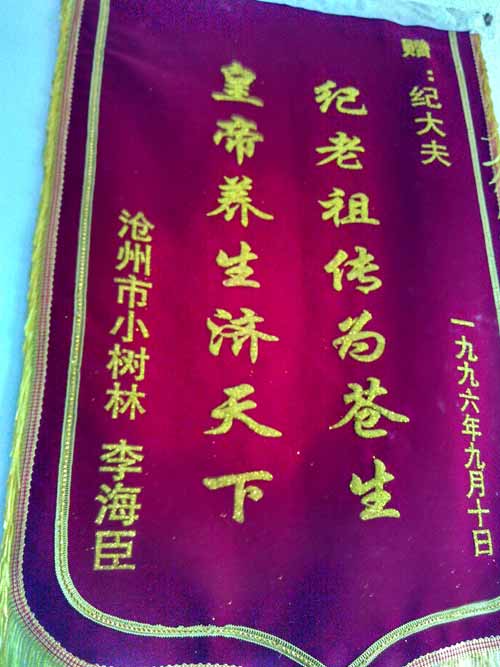 赠：纪大夫
纪老祖传为苍生
皇帝养生济天下
沧州市小树林 李海臣
一九九六年九月十日